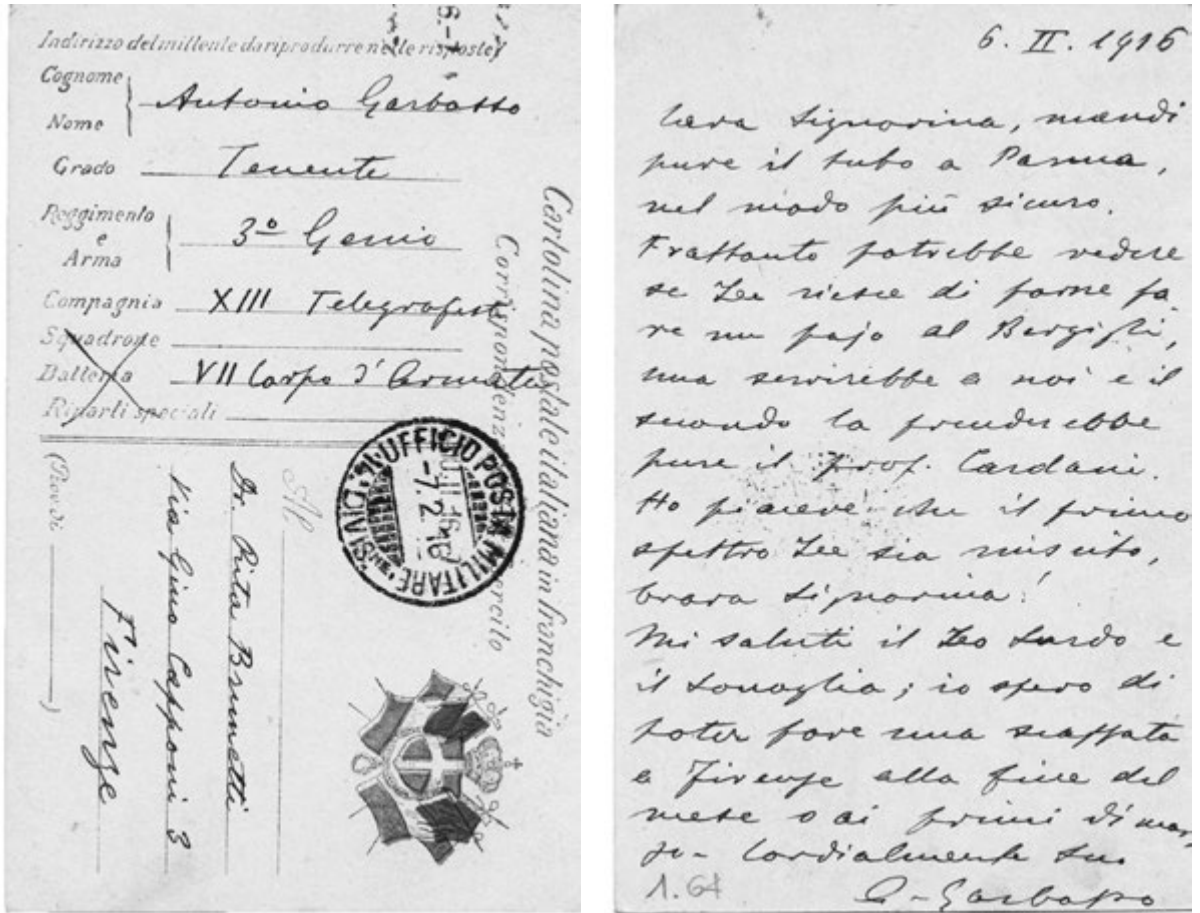 Indirizzo del mittente da riprodurre nelle risposte
Cognome
Nome
Antonio Garbasso
Grado Tenente
Reggimento
e
Arma
3º Genio
Compagnia XIII Telegrafisti
Squadrone
Batteria VII Corpo d'Armata
Riparti speciali
Cartolina postale italiana in franchigia
Corrispondenza
ercito
UFFICIO POSTA MILITARE
DIVIS.
-7.2.16
Al
Dr. Rita Brunetti
Via Gino Capponi 3
Firenze
(Prov. di )
6. II. 1916
Cara Signorina, mandi
pure il tubo a Parma,
nel modo più sicuro.
Frattanto potrebbe vedere
se Lee riesce di farne fa
re un pajo al Bargigli,
una servirebbe a noi e il
secondo lo prenderebbe
pure il prof. Cardani.
Ho piacere che il primo
spettro Lee sia riuscito,
brava Signorina!
Mi saluti il Lo Surdo e
il Sonaglia; io spero di
poter fare una scappata
a Firenze alla fine del
mese o ai primi di mar
zo - Cordialmente suo
A. Garbasso
1.64